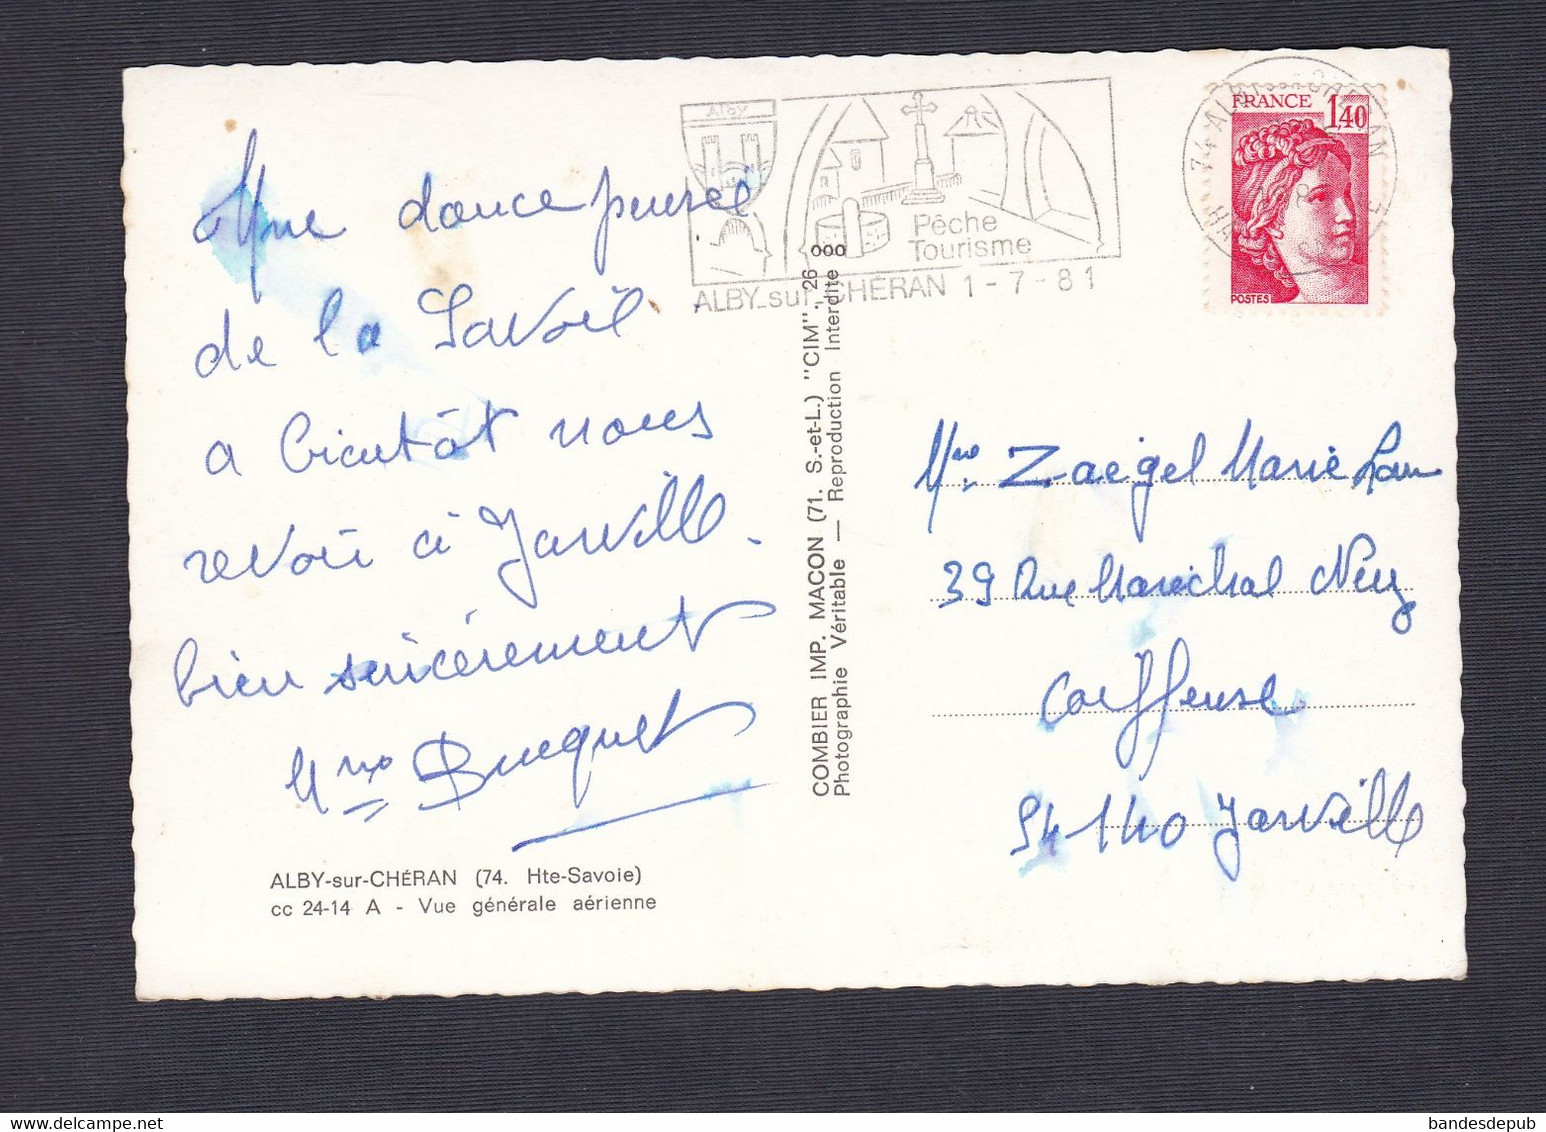 Une douce pensée
de la Savoie
a bientôt nous
revoir à Jarville.
bien sincèrement
Mme Bucquet
ALBY-sur-CHÉRAN (74. Hte-Savoie)
cc 24-14 A - Vue générale aérienne
COMBIER IMP. MACON (71. S.-et-L.) "CIM", 26 000
Photographie Véritable — Reproduction Interdite
Alby
Pêche
Tourisme
ALBY-sur-CHÉRAN 1-7-81
FRANCE 1,40
POSTES
Mme Zaegel Marie Lou
39 Rue Maréchal Ney
Coiffeuse
54140 Jarville
bandesdepub